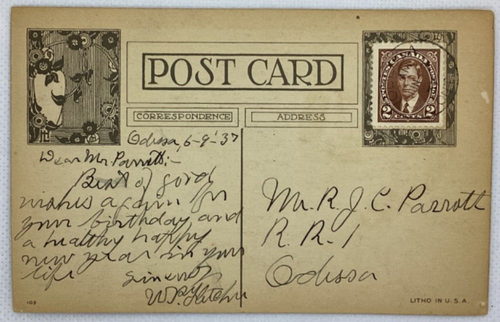 POST CARD
CORRESPONDENCE
ADDRESS
POSTES CANADA POSTAGE
2 CENTS 2
Odessa, 6-9-'37
Dear Mr. Parrott:-
Best of good
wishes again for
your birthday and
a healthy happy
new year in your
life
Sincerely
Mr. R. J. C. Parrott
R. R. 1
Odessa
109
LITHO IN U.S.A.